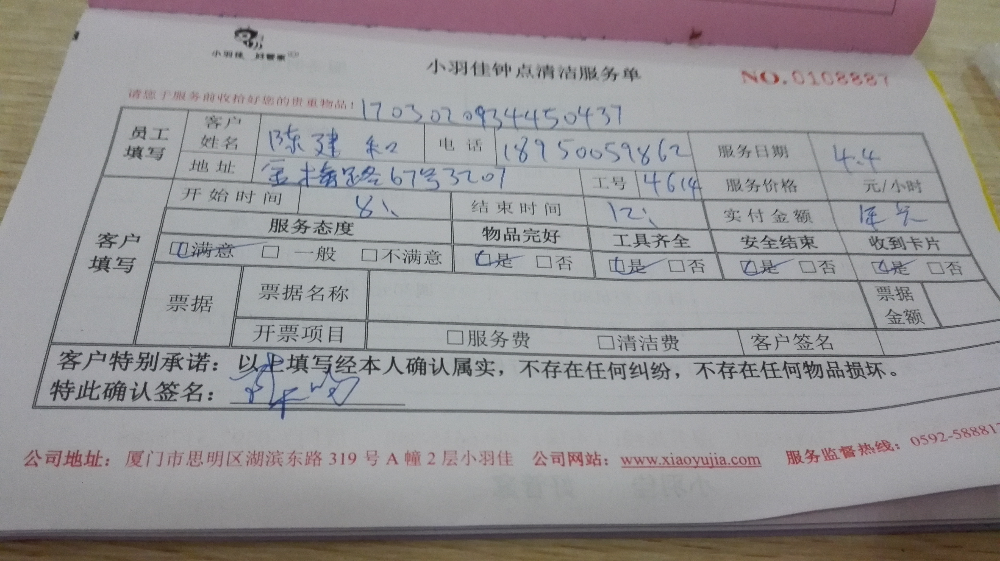 小羽佳 好管家
小羽佳钟点清洁服务单
NO.0108887
请您于服务前收拾好您的贵重物品!
17030209344450437
员工填写 客户姓名 陈建和 电话 18950059862 服务日期 4.4
地址 金尚路67号3201 工号 4614 服务价格 元/小时
客户填写 开始时间 8: 结束时间 12: 实付金额
服务态度 物品完好 工具齐全 安全结束 收到卡片
☑满意 □一般 □不满意 ☑是 □否 ☑是 □否 ☑是 □否 ☑是 □否
票据 票据名称 票据金额
开票项目 □服务费 □清洁费 客户签名
客户特别承诺:以上填写经本人确认属实,不存在任何纠纷,不存在任何物品损坏。
特此确认签名:
公司地址:厦门市思明区湖滨东路 319 号 A 幢 2 层小羽佳 公司网站:www.xiaoyujia.com 服务监督热线:0592-588817